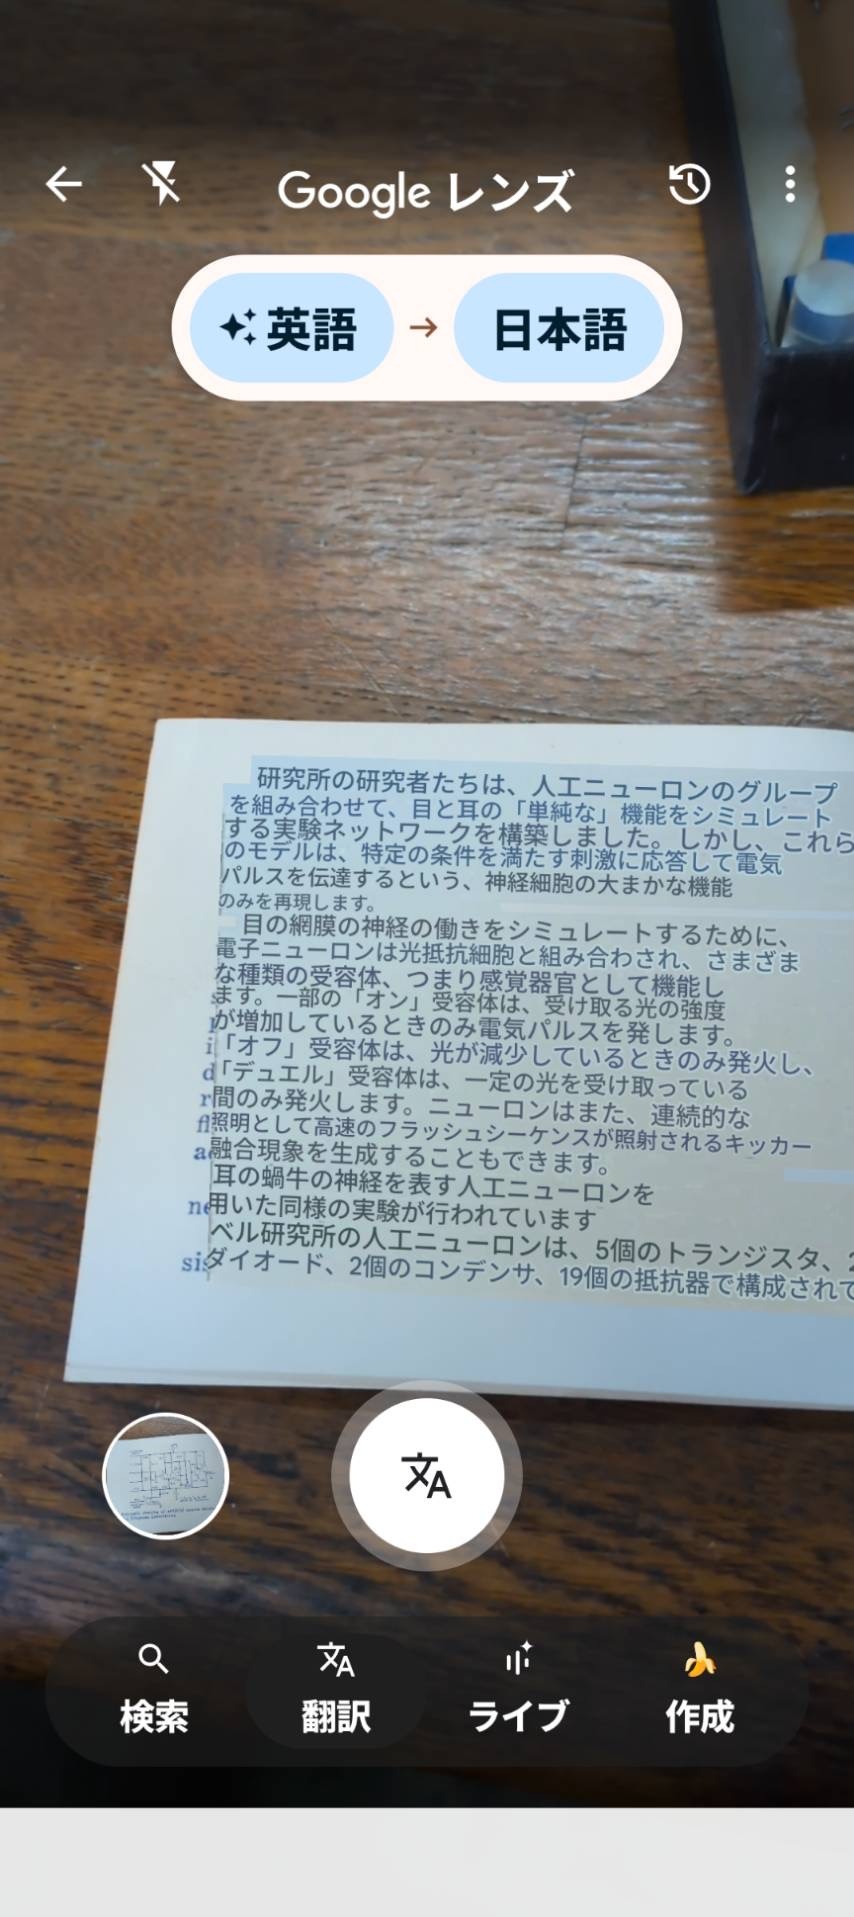 Google レンズ
英語 → 日本語
研究所の研究者たちは、人工ニューロンのグループ
を組み合わせて、目と耳の「単純な」機能をシミュレート
する実験ネットワークを構築しました。しかし、これら
のモデルは、特定の条件を満たす刺激に応答して電気
パルスを伝達するという、神経細胞の大まかな機能
のみを再現します。
目の網膜の神経の働きをシミュレートするために、
電子ニューロンは光抵抗細胞と組み合わされ、さまざま
な種類の受容体、つまり感覚器官として機能し
ます。一部の「オン」受容体は、受け取る光の強度
が増加しているときのみ電気パルスを発します。
「オフ」受容体は、光が減少しているときのみ発火し、
「デュエル」受容体は、一定の光を受け取っている
間のみ発火します。ニューロンはまた、連続的な
照明として高速のフラッシュシーケンスが照射されるキッカー
融合現象を生成することもできます。
耳の蝸牛の神経を表す人工ニューロンを
用いた同様の実験が行われています
ベル研究所の人工ニューロンは、5個のトランジスタ、2
ダイオード、2個のコンデンサ、19個の抵抗器で構成されて
検索
翻訳
ライブ
作成